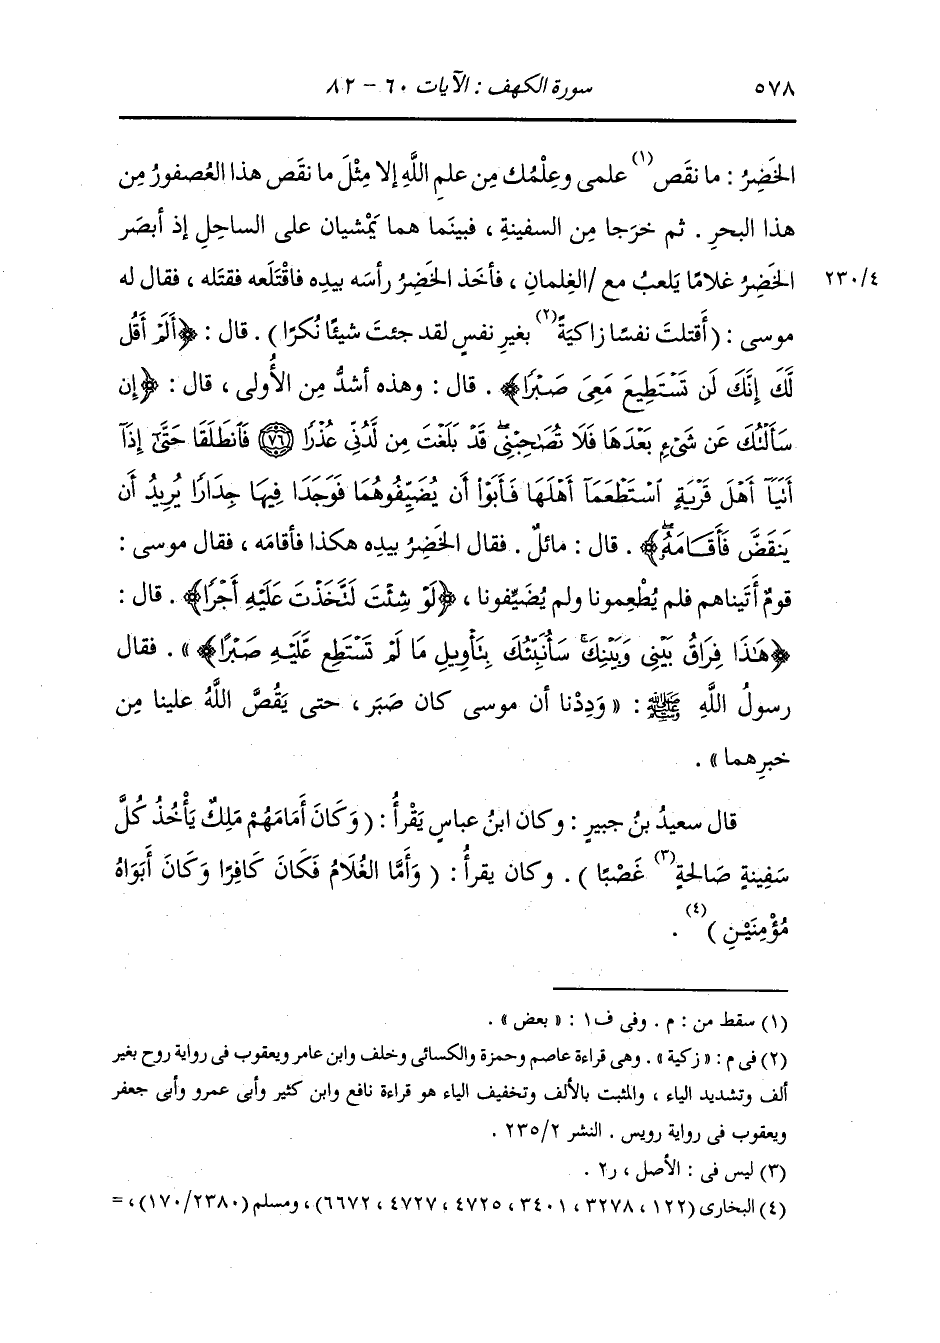 ٥٧٨ سورة الكهف : الآيات ٦٠ - ٨٢
الخَضِرُ : ما نقَص(١) علمى وعِلْمُك مِن علمِ اللَّهِ إلا مِثْلَ ما نقَص هذا العُصفورُ مِن
هذا البحرِ . ثم خرَجا مِن السفينةِ ، فبينَما هما يَمْشيان على الساحلِ إذ أبصَر
الخَضِرُ غلامًا يَلعبُ مع /الغِلمانِ ، فأخَذ الخَضِرُ رأسَه بيدِه فاقْتَلَعه فقتَله ، فقال له ٢٣٠/٤
موسى : ( أَقتلتَ نفسًا زاكيَةً(٢) بغيرِ نفسٍ لقد جئتَ شيئًا نُكرًا ) . قال : ﴿أَلَمْ أَقُل
لَّكَ إِنَّكَ لَن تَسْتَطِيعَ مَعِىَ صَبْرًا﴾ . قال : وهذه أشدُّ مِن الأُولى ، قال : ﴿إِن
سَأَلْتُكَ عَن شَىْءٍ بَعْدَهَا فَلَا تُصَٰحِبْنِىۖ قَدْ بَلَغْتَ مِن لَّدُنِّى عُذْرًا ﴿٧٦﴾ فَٱنطَلَقَا حَتَّىٰٓ إِذَآ
أَتَيَآ أَهْلَ قَرْيَةٍ ٱسْتَطْعَمَآ أَهْلَهَا فَأَبَوْا۟ أَن يُضَيِّفُوهُمَا فَوَجَدَا فِيهَا جِدَارًا يُرِيدُ أَن
يَنقَضَّ فَأَقَامَهُۥۖ﴾ . قال : مائلٌ . فقال الخَضِرُ بيدِه هكذا فأقامَه ، فقال موسى :
قومٌ أَتَيناهم فلم يُطْعِمونا ولم يُضَيِّفونا ، ﴿لَوْ شِئْتَ لَتَّخَذْتَ عَلَيْهِ أَجْرًا﴾ . قال :
﴿هَٰذَا فِرَاقُ بَيْنِى وَبَيْنِكَۚ سَأُنَبِّئُكَ بِتَأْوِيلِ مَا لَمْ تَسْتَطِع عَّلَيْهِ صَبْرًا﴾ » . فقال
رسولُ اللَّهِ ﷺ : « وَدِدْنا أن موسى كان صَبَر ، حتى يَقُصَّ اللَّهُ علينا مِن
خبرِهما » .
قال سعيدُ بنُ جبيرٍ : وكان ابنُ عباسٍ يَقْرأُ : ( وَكَانَ أَمَامَهُمْ مَلِكٌ يَأْخُذُ كُلَّ
سَفِينةٍ صَالحةٍ(٣) غَصْبًا ) . وكان يقرأُ : ( وَأَمَّا الغُلَامُ فَكَانَ كَافِرًا وَكَانَ أَبَوَاهُ
مُؤْمِنَيْنِ )(٤) .
(١) سقط من : م . وفى ف١ : « بعض » .
(٢) فى م : « زكية » . وهى قراءة عاصم وحمزة والكسائى وخلف وابن عامر ويعقوب فى رواية روح بغير
ألف وتشديد الياء ، والمثبت بالألف وتخفيف الياء هو قراءة نافع وابن كثير وأبى عمرو وأبى جعفر
ويعقوب فى رواية رويس . النشر ٢٣٥/٢ .
(٣) ليس فى : الأصل ، ر٢ .
(٤) البخارى (١٢٢ ، ٣٢٧٨ ، ٣٤٠١ ، ٤٧٢٥ ، ٤٧٢٧ ، ٦٦٧٢) ، ومسلم (١٧٠/٢٣٨٠) ، =